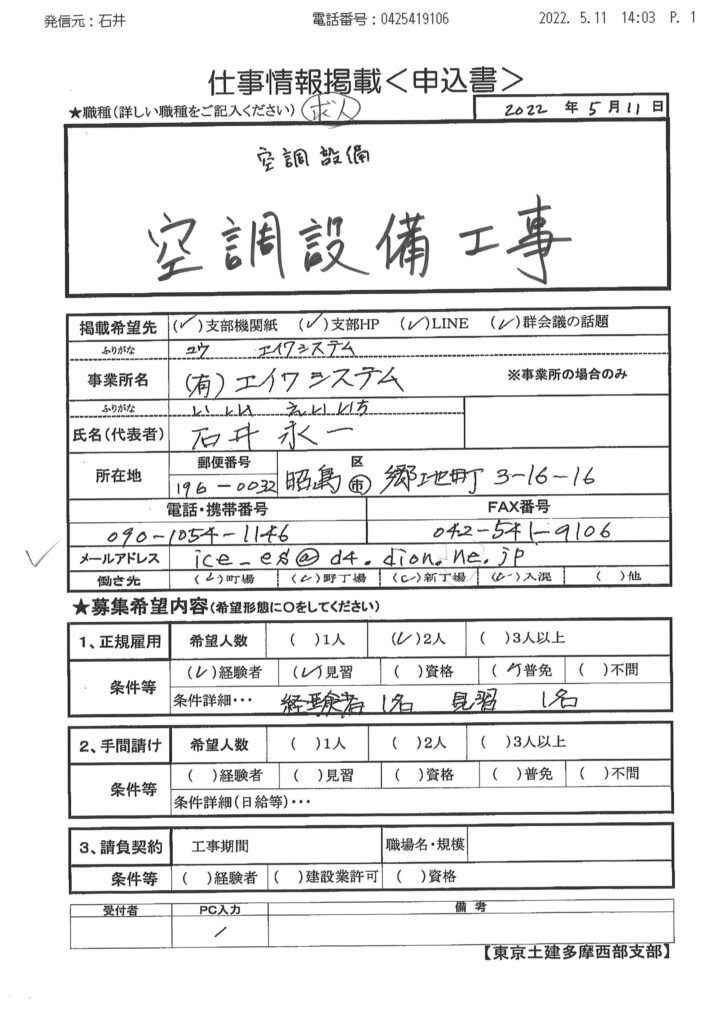 発信元：石井 電話番号：0425419106 2022. 5.11 14:03 P. 1
仕事情報掲載＜申込書＞
★職種(詳しい職種をご記入ください) 求人 2022 年 5 月 11 日
空調設備
空調設備工事
掲載希望先 (✓)支部機関紙 (✓)支部HP (✓)LINE (✓)群会議の話題
ふりがな ユウ エイワシステム
事業所名 (有)エイワシステム ※事業所の場合のみ
ふりがな いしい えいいち
氏名(代表者) 石井 永一
所在地 郵便番号 196-0032 昭島 区 市 郷地町 3-16-16
電話・携帯番号 FAX番号
090-1054-1146 042-541-9106
メールアドレス ice_es@d4.dion.ne.jp
働き先 (✓)町場 (✓)野丁場 (✓)新丁場 (✓)入混 ( )他
★募集希望内容(希望形態に○をしてください)
1、正規雇用 希望人数 ( )1人 (✓)2人 ( )3人以上
条件等 (✓)経験者 (✓)見習 ( )資格 (✓)普免 ( )不問
条件詳細・・・ 経験者 1名 見習 1名
2、手間請け 希望人数 ( )1人 ( )2人 ( )3人以上
条件等 ( )経験者 ( )見習 ( )資格 ( )普免 ( )不問
条件詳細(日給等)・・・
3、請負契約 工事期間 職場名・規模
条件等 ( )経験者 ( )建設業許可 ( )資格
受付者 PC入力 備考
【東京土建多摩西部支部】